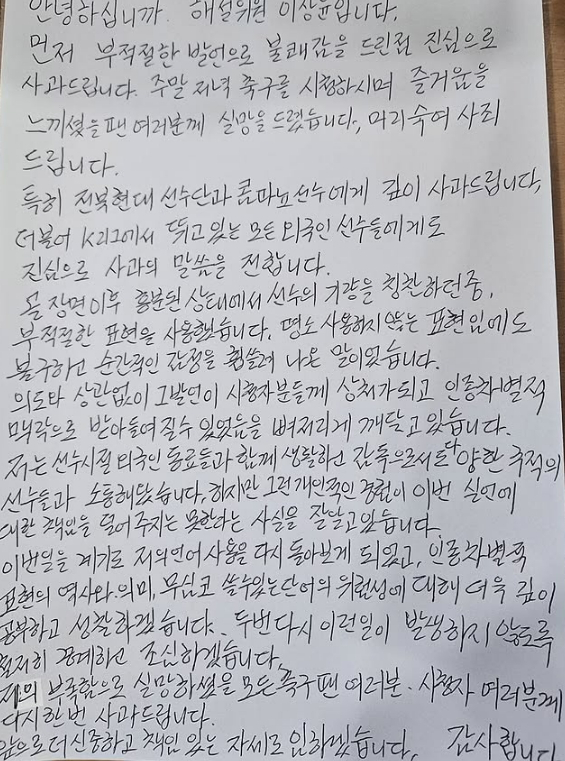 안녕하십니까. 해설위원 이상윤입니다.
먼저 부적절한 발언으로 불쾌감을 드린점 진심으로
사과드립니다. 주말 저녁 축구를 시청하시며 즐거움을
느끼셨을 팬 여러분께 실망을 드렸습니다, 머리숙여 사죄
드립니다.
특히 전북현대 선수단과 콤파뇨선수에게 깊이 사과드립니다,
더불어 K리그에서 뛰고 있는 모든 외국인 선수들에게도
진심으로 사과의 말씀을 전합니다.
골 장면이후 흥분된 상태에서 선수의 기량을 칭찬하던중,
부적절한 표현을 사용했습니다, 평소 사용하지 않는 표현임에도
불구하고 순간적인 감정을 휩쓸려 나온 말이었습니다.
의도와 상관없이 그발언이 시청자분들께 상처가되고 인종차별적
맥락으로 받아들여질수 있었음을 뼈저리게 깨닫고 있습니다.
저는 선수시절 외국인 동료들과 함께 생활하고 감독으로서도 다양한 국적의
선수들과 소통해왔습니다, 하지만 그런 개인적인 경험이 이번 실언에
대한 책임을 덜어주지는 못한다는 사실을 잘알고 있습니다.
이번일을 계기로 저의 언어 사용을 다시 돌아보게 되었고, 인종차별적
표현의 역사와 의미, 무심코 쓸수있는 단어의 위험성에 대해 더욱 깊이
공부하고 성찰하겠습니다. 두번다시 이런일이 발생하지 않도록
철저히 경계하고 조심하겠습니다.
저의 부족함으로 실망하셨을 모든 축구팬 여러분. 시청자 여러분께
다시한번 사과드립니다.
앞으로 더 신중하고 책임 있는 자세로 임하겠습니다, 감사합니다